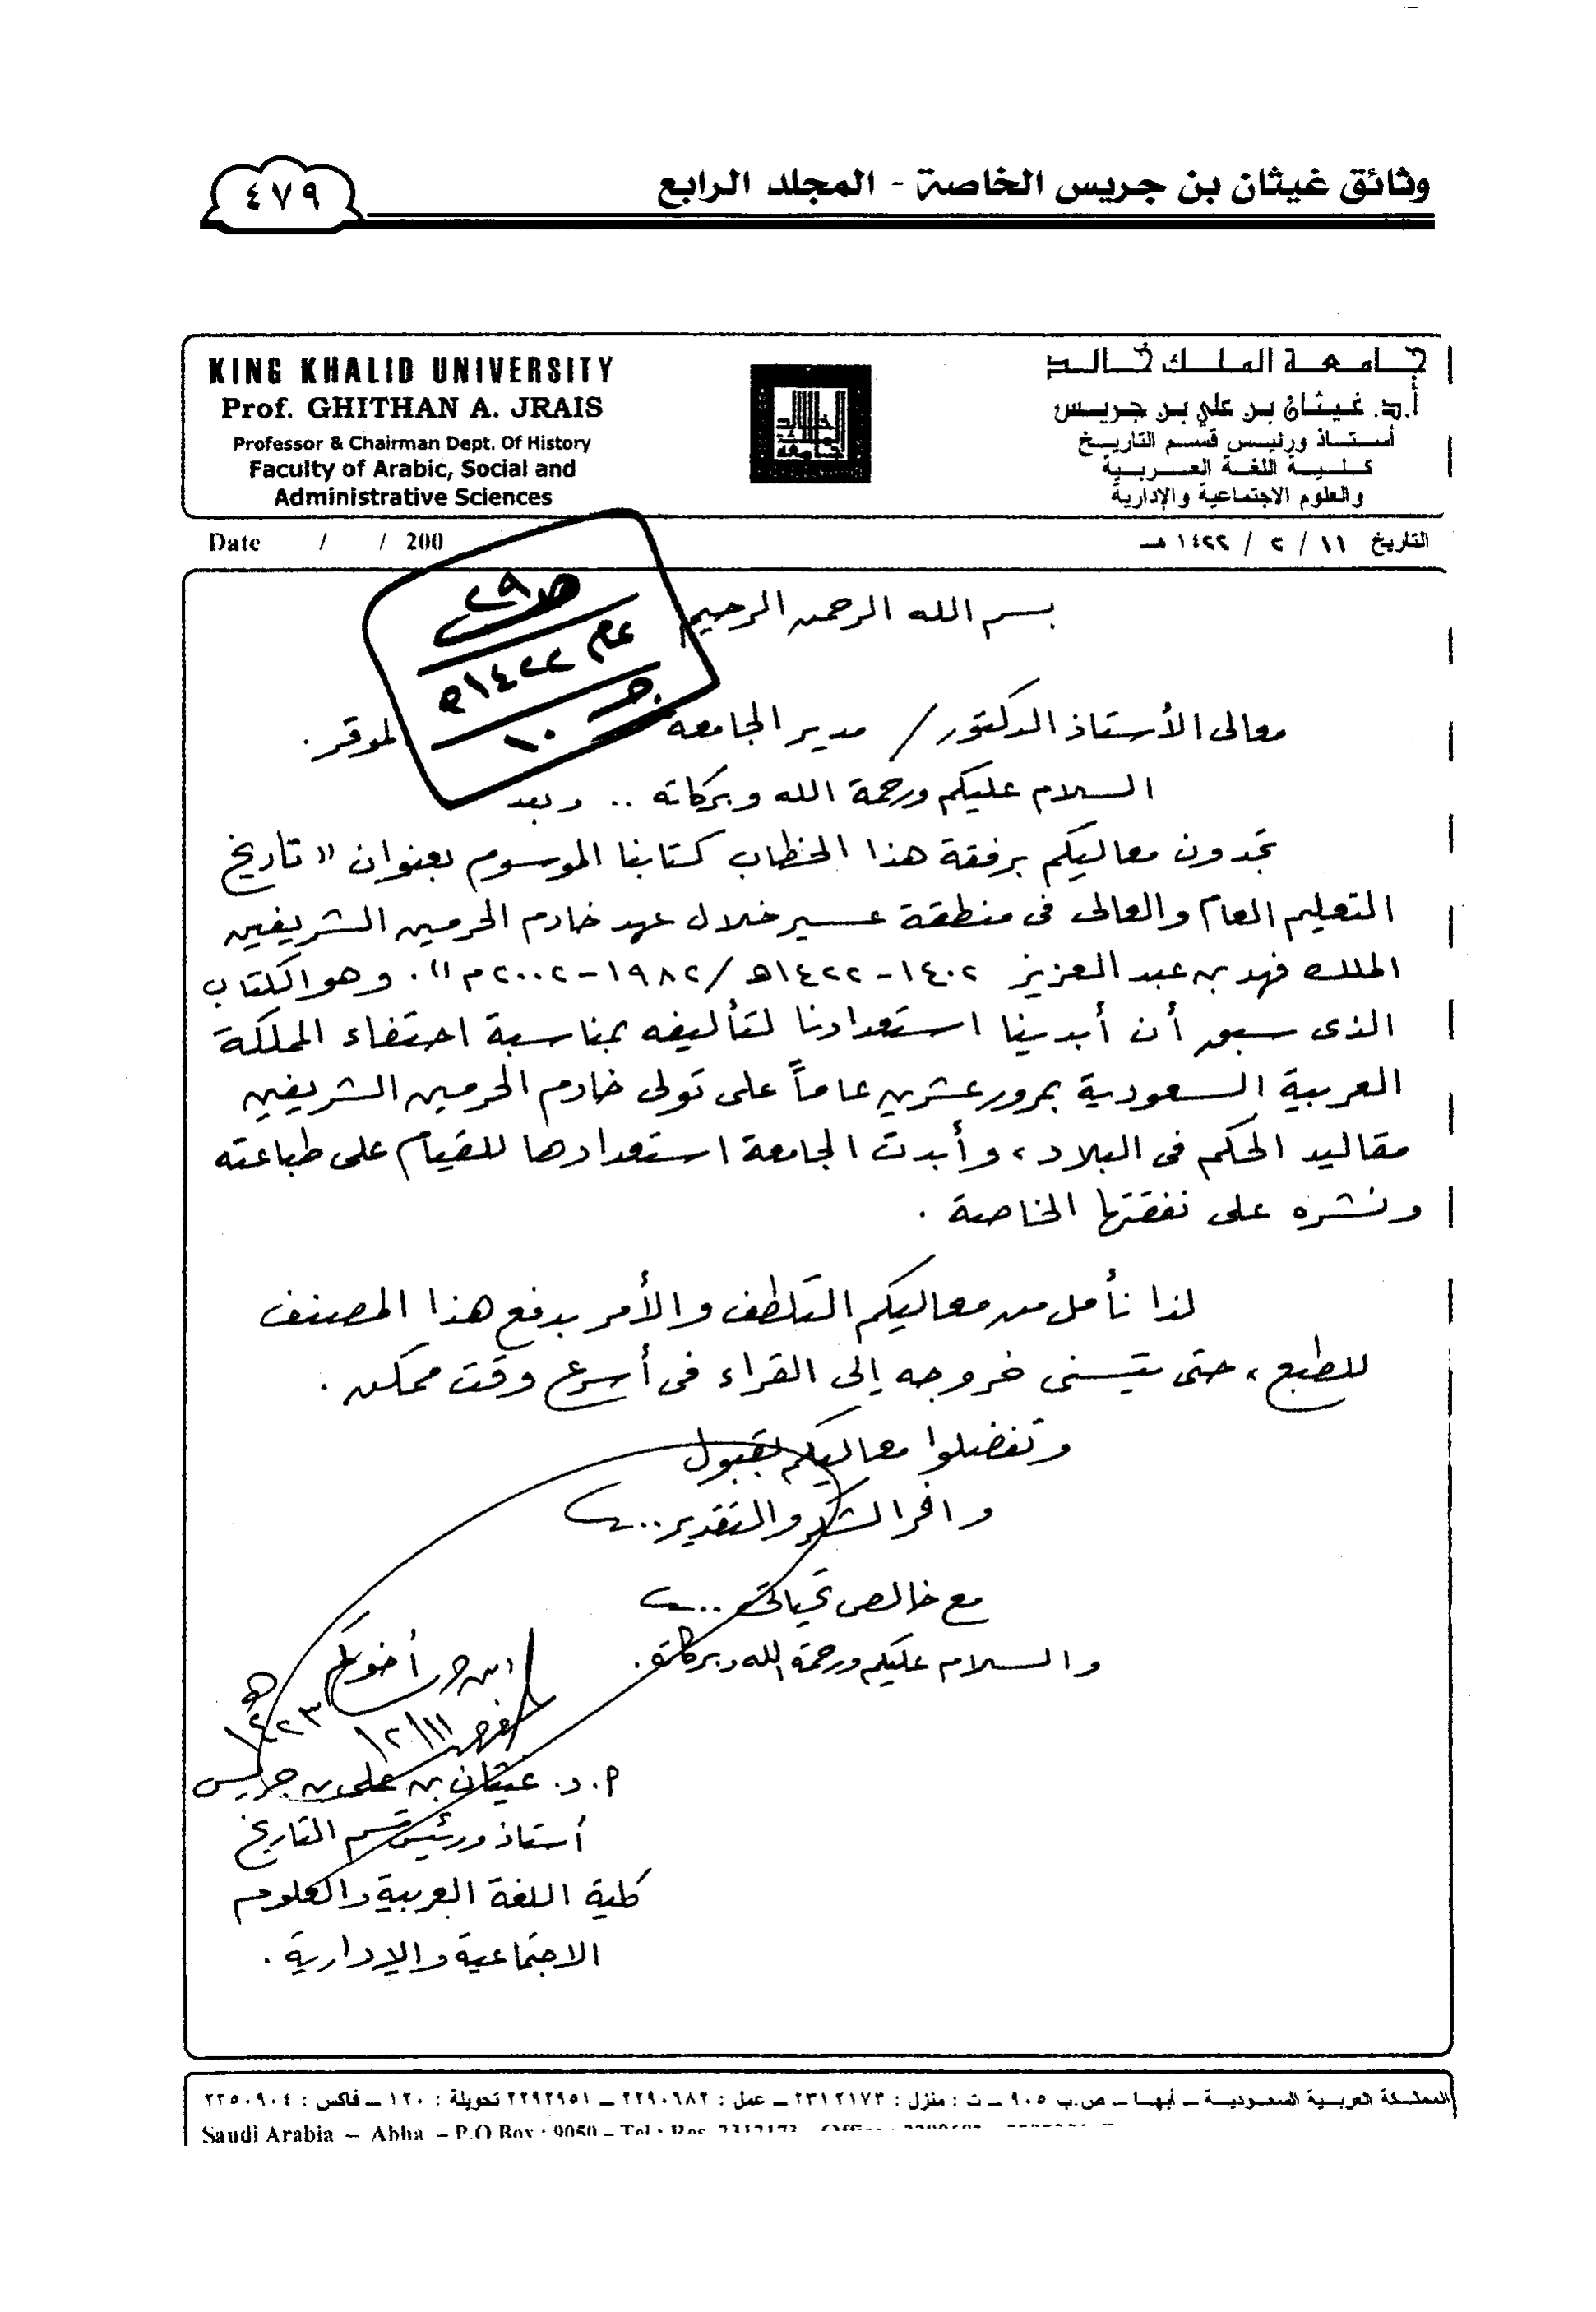 وثائق غيثان بن جريس الخاصة - المجلد الرابع
٤٧٩
KING KHALID UNIVERSITY
Prof. GHITHAN A. JRAIS
Professor & Chairman Dept. Of History
Faculty of Arabic, Social and
Administrative Sciences
جامعة الملك خالد
أ.د. غيثان بن علي بن جريس
أستاذ ورئيس قسم التاريخ
كلية اللغة العربية
والعلوم الاجتماعية والإدارية
Date / / 200
التاريخ ١١ / ٢ / ١٤٢٢ هـ
عام ١٤٢٢هـ
بسم الله الرحمن الرحيم
معالى الأستاذ الدكتور / مدير الجامعة الموقر .
السلام عليكم ورحمة الله وبركاته .. وبعد
تجدون معاليكم برفقة هذا الخطاب كتابنا الموسوم بعنوان " تاريخ
التعليم العام والعالى فى منطقة عسير خلال عهد خادم الحرمين الشريفين
الملك فهد بن عبد العزيز ١٤٠٢ - ١٤٢٢هـ / ١٩٨٢ - ٢٠٠٢م " . وهو الكتاب
الذى سبق أن أبدينا استعدادنا لتأليفه بمناسبة احتفاء المملكة
العربية السعودية بمرور عشرين عاماً على تولى خادم الحرمين الشريفين
مقاليد الحكم فى البلاد ، وأبدت الجامعة استعدادها للقيام على طباعته
ونشره على نفقتها الخاصة .
لذا نأمل من معاليكم التلطف والأمر بدفع هذا المصنف
للطبع ، حتى يتسنى خروجه إلى القراء فى أسرع وقت ممكن .
وتفضلوا معاليكم بقبول
وافر الشكر والتقدير ..
مع خالص تحياتى ..
والسلام عليكم ورحمة الله وبركاته .
أخوكم
أ . د . غيثان بن على بن جريس
أستاذ ورئيس قسم التاريخ
كلية اللغة العربية والعلوم
الاجتماعية والإدارية .
المملكة العربية السعودية – أبهـا – ص.ب ٩٠٥ – ت : منزل : ٢٣١٢١٧٣ – عمل : ٢٢٩٠٦٨٢ – ٢٢٩٢٩٥١ تحويلة : ١٢٠ – فاكس : ٢٢٥٠٩٠٤
Saudi Arabia – Abha – P.O Box : 9050 – Tel : Res. 2312173